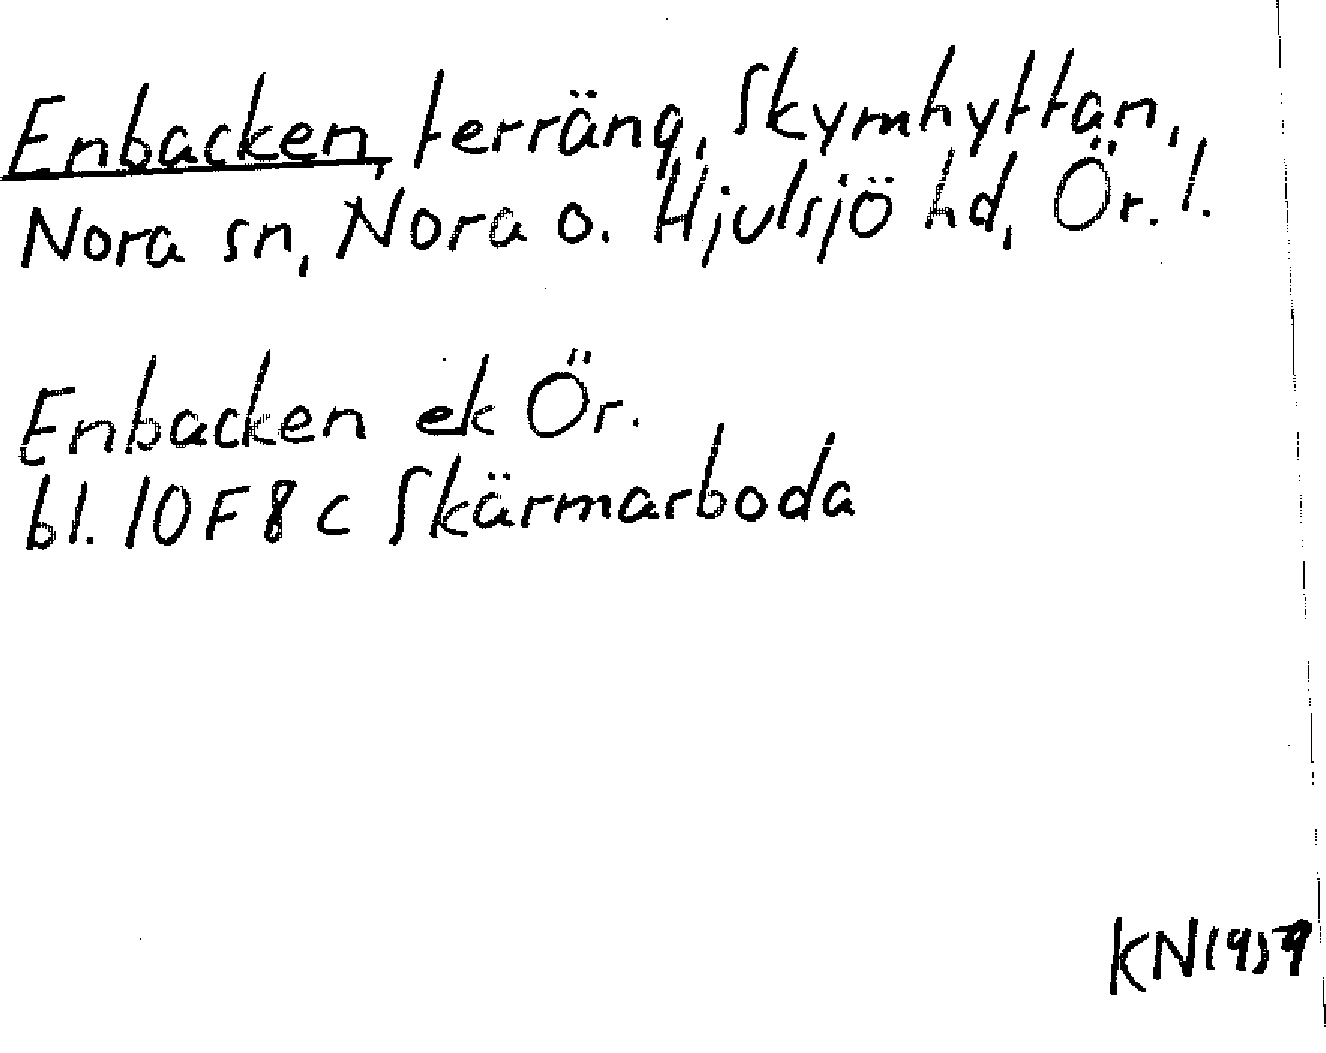 Enbacken, terräng, Skymhyttan,
Nora sn, Nora o. Hjulsjö hd, Ör. l.
Enbacken ek Ör.
bl. 10F 8 c Skärmarboda
KN